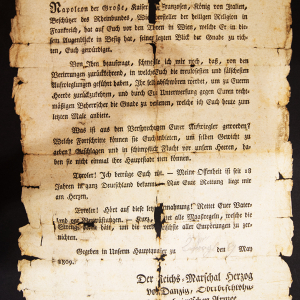 Napoleon der Große, Kaiser Franzosen, König von Italien,
Beschützer des Rheinbundes, Wiederhersteller der heiligen Religion in
Frankreich, hat auf Euch vor den Thoren in Wien, ehe Er in die-
sem Augenblicke in Besitz hat, einen letzten Blick der Gnade zu rich-
ten, Euch gewürdigt.
Von Ihm beauftragt, schmeichle ich mir noch, daß, von den
Verirrungen zurückkehrend, in welche Euch die treulosesten und fälschesten
Aufwieglungen geführt haben, Ihr streben werdet, um zu Euern
Herde zurückzukehren, und durch Unterwerfung gegen Euren recht-
mäßigen Beherrscher die Gnade zu verdienen, welche ich Euch heute zum
letzten Male anbiete.
Was ist aus den Versprechungen Eurer Aufwiegler geworden?
Welche Fortschritte können sie Euch anbieten, um selben Gewicht zu
geben? Geschlagen und in schimpflich Flucht vor unseren Heeren, ha-
ben sie nicht einmal ihre Hauptstadt können.
Tyroler! Ich betrüge Euch nicht. — Meine Offenheit ist seit 18
Jahren ganz Deutschland bekannt. Nur Eure Rettung liegt mir
am Herzen.
Tyroler! Hört auf diese letzte Ermahnung! Rettet Euer Vater-
land vor Verwüstungen. alle Maßregeln, welche die
bin, um die verächtlichste aller Empörungen zu zerschmet-
tern.
Gegeben in Unserm Hauptquartier zu den May
1809.
Der Reichs-Marschal Herzog
von Danzig, Oberbefehlshaber
Armee